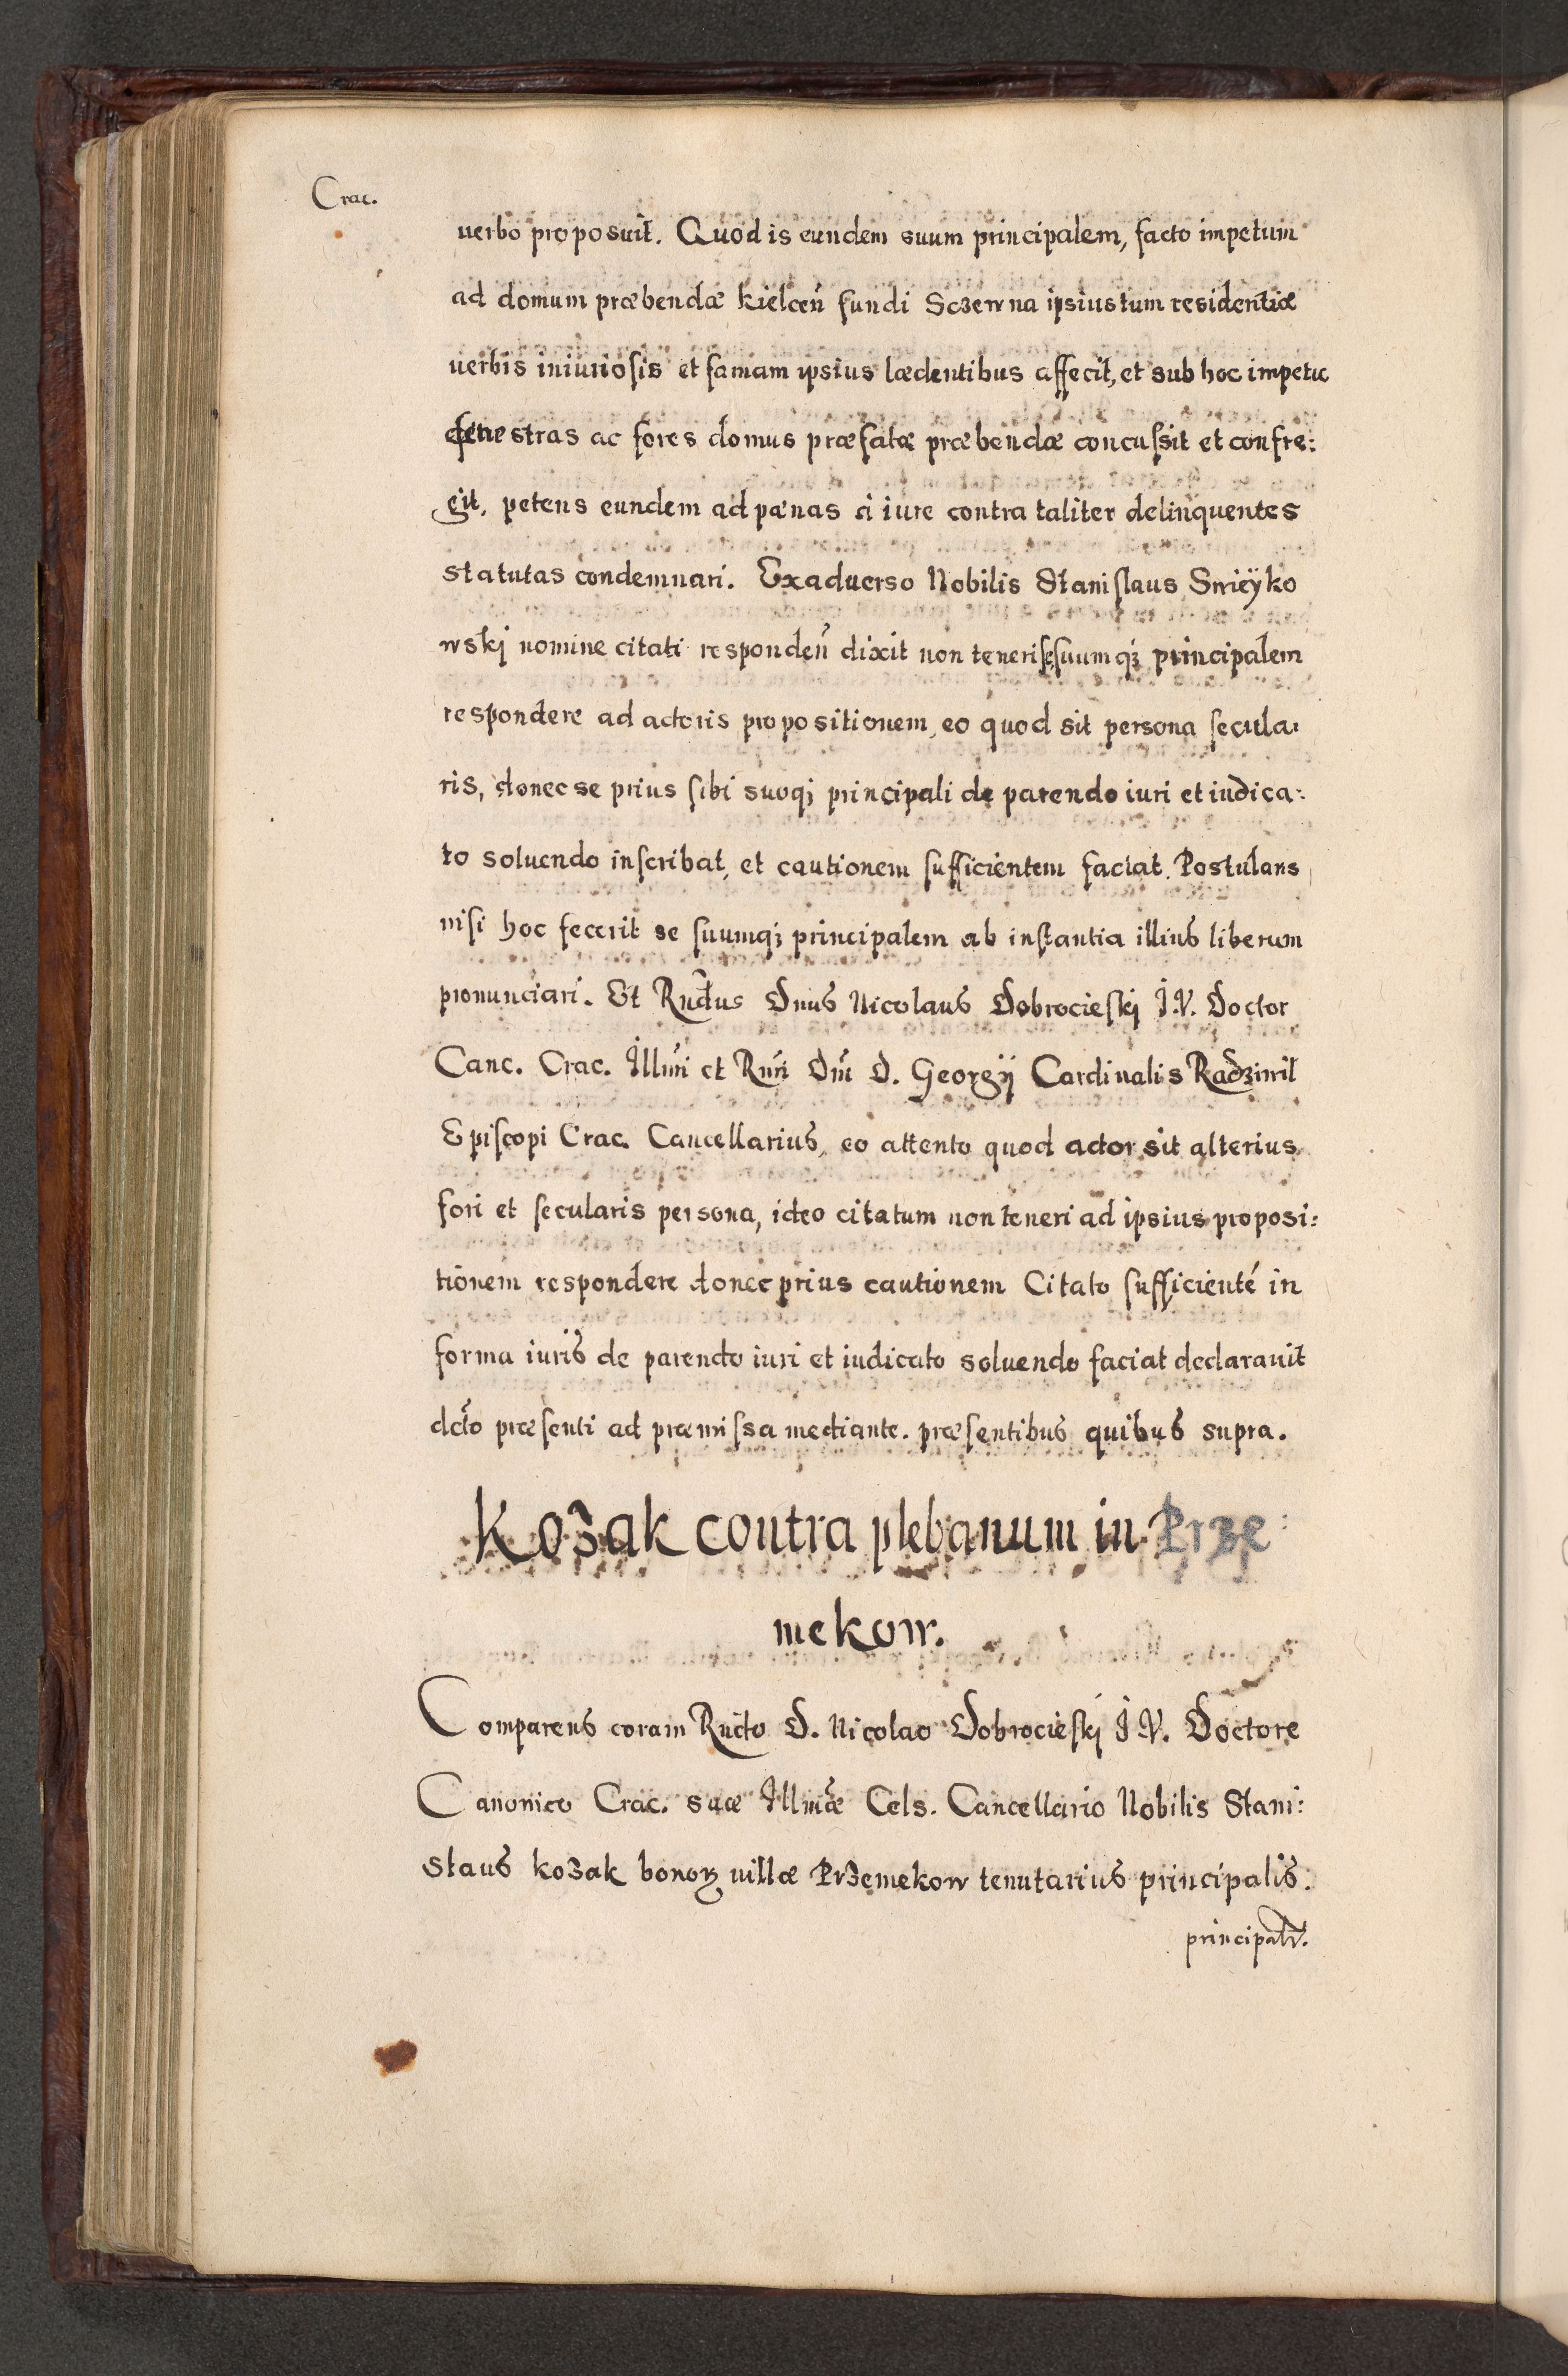 Crac.
uerbo proposuit. Quod is eundem suum principalem, facto impetum
ad domum præbendæ kielceñ fundi Sczewna ipsius tum residentiæ
uerbis iniuriosis et famam ipsius lædentibus affecit, et sub hoc impetu
fenestras ac fores domus præfatæ præbendæ concussit et confre:
git, petens eundem ad pænas à iure contra taliter delinquentes
statutas condemnari. Exaduerso Nobilis Stanislaus Swieÿko
wskj nomine citati respondeñ dixit non teneri se suumq; principalem
respondere ad actoris propositionem, eo quod sit persona secula:
ris, donec se prius sibi suoq; principali de parendo iuri et iudica:
to soluendo inscribat, et cautionem sufficientem faciat. Postulans
nisi hoc fecerit se suumq; principalem ab instantia illius liberum
pronunciari. Et Rndus Dnus Nicolaus Dobrocieskj J.V. Doctor
Canc. Crac. Illmi et Rmi Dni D. Georgÿ Cardinalis Radziwil
Episcopi Crac. Cancellarius, eo attento quod actor sit alterius
fori et secularis persona, ideo citatum non teneri ad ipsius proposi:
tionem respondere donec prius cautionem Citato sufficienté in
forma iuris de parendo iuri et iudicato soluendo faciat declarauit
dcto præsenti ad præmissa mediante. præsentibus quibus supra.
Kozak contra plebanum in Prze:
mekow.
Comparens coram Rndo D. Nicolao Dobrocieskj J.V. Doctore
Canonico Crac. suæ Illmæ Cels. Cancellario Nobilis Stani:
slaus kozak bonoꝝ uillæ Przemekow tenutarius principalis.
principalr.